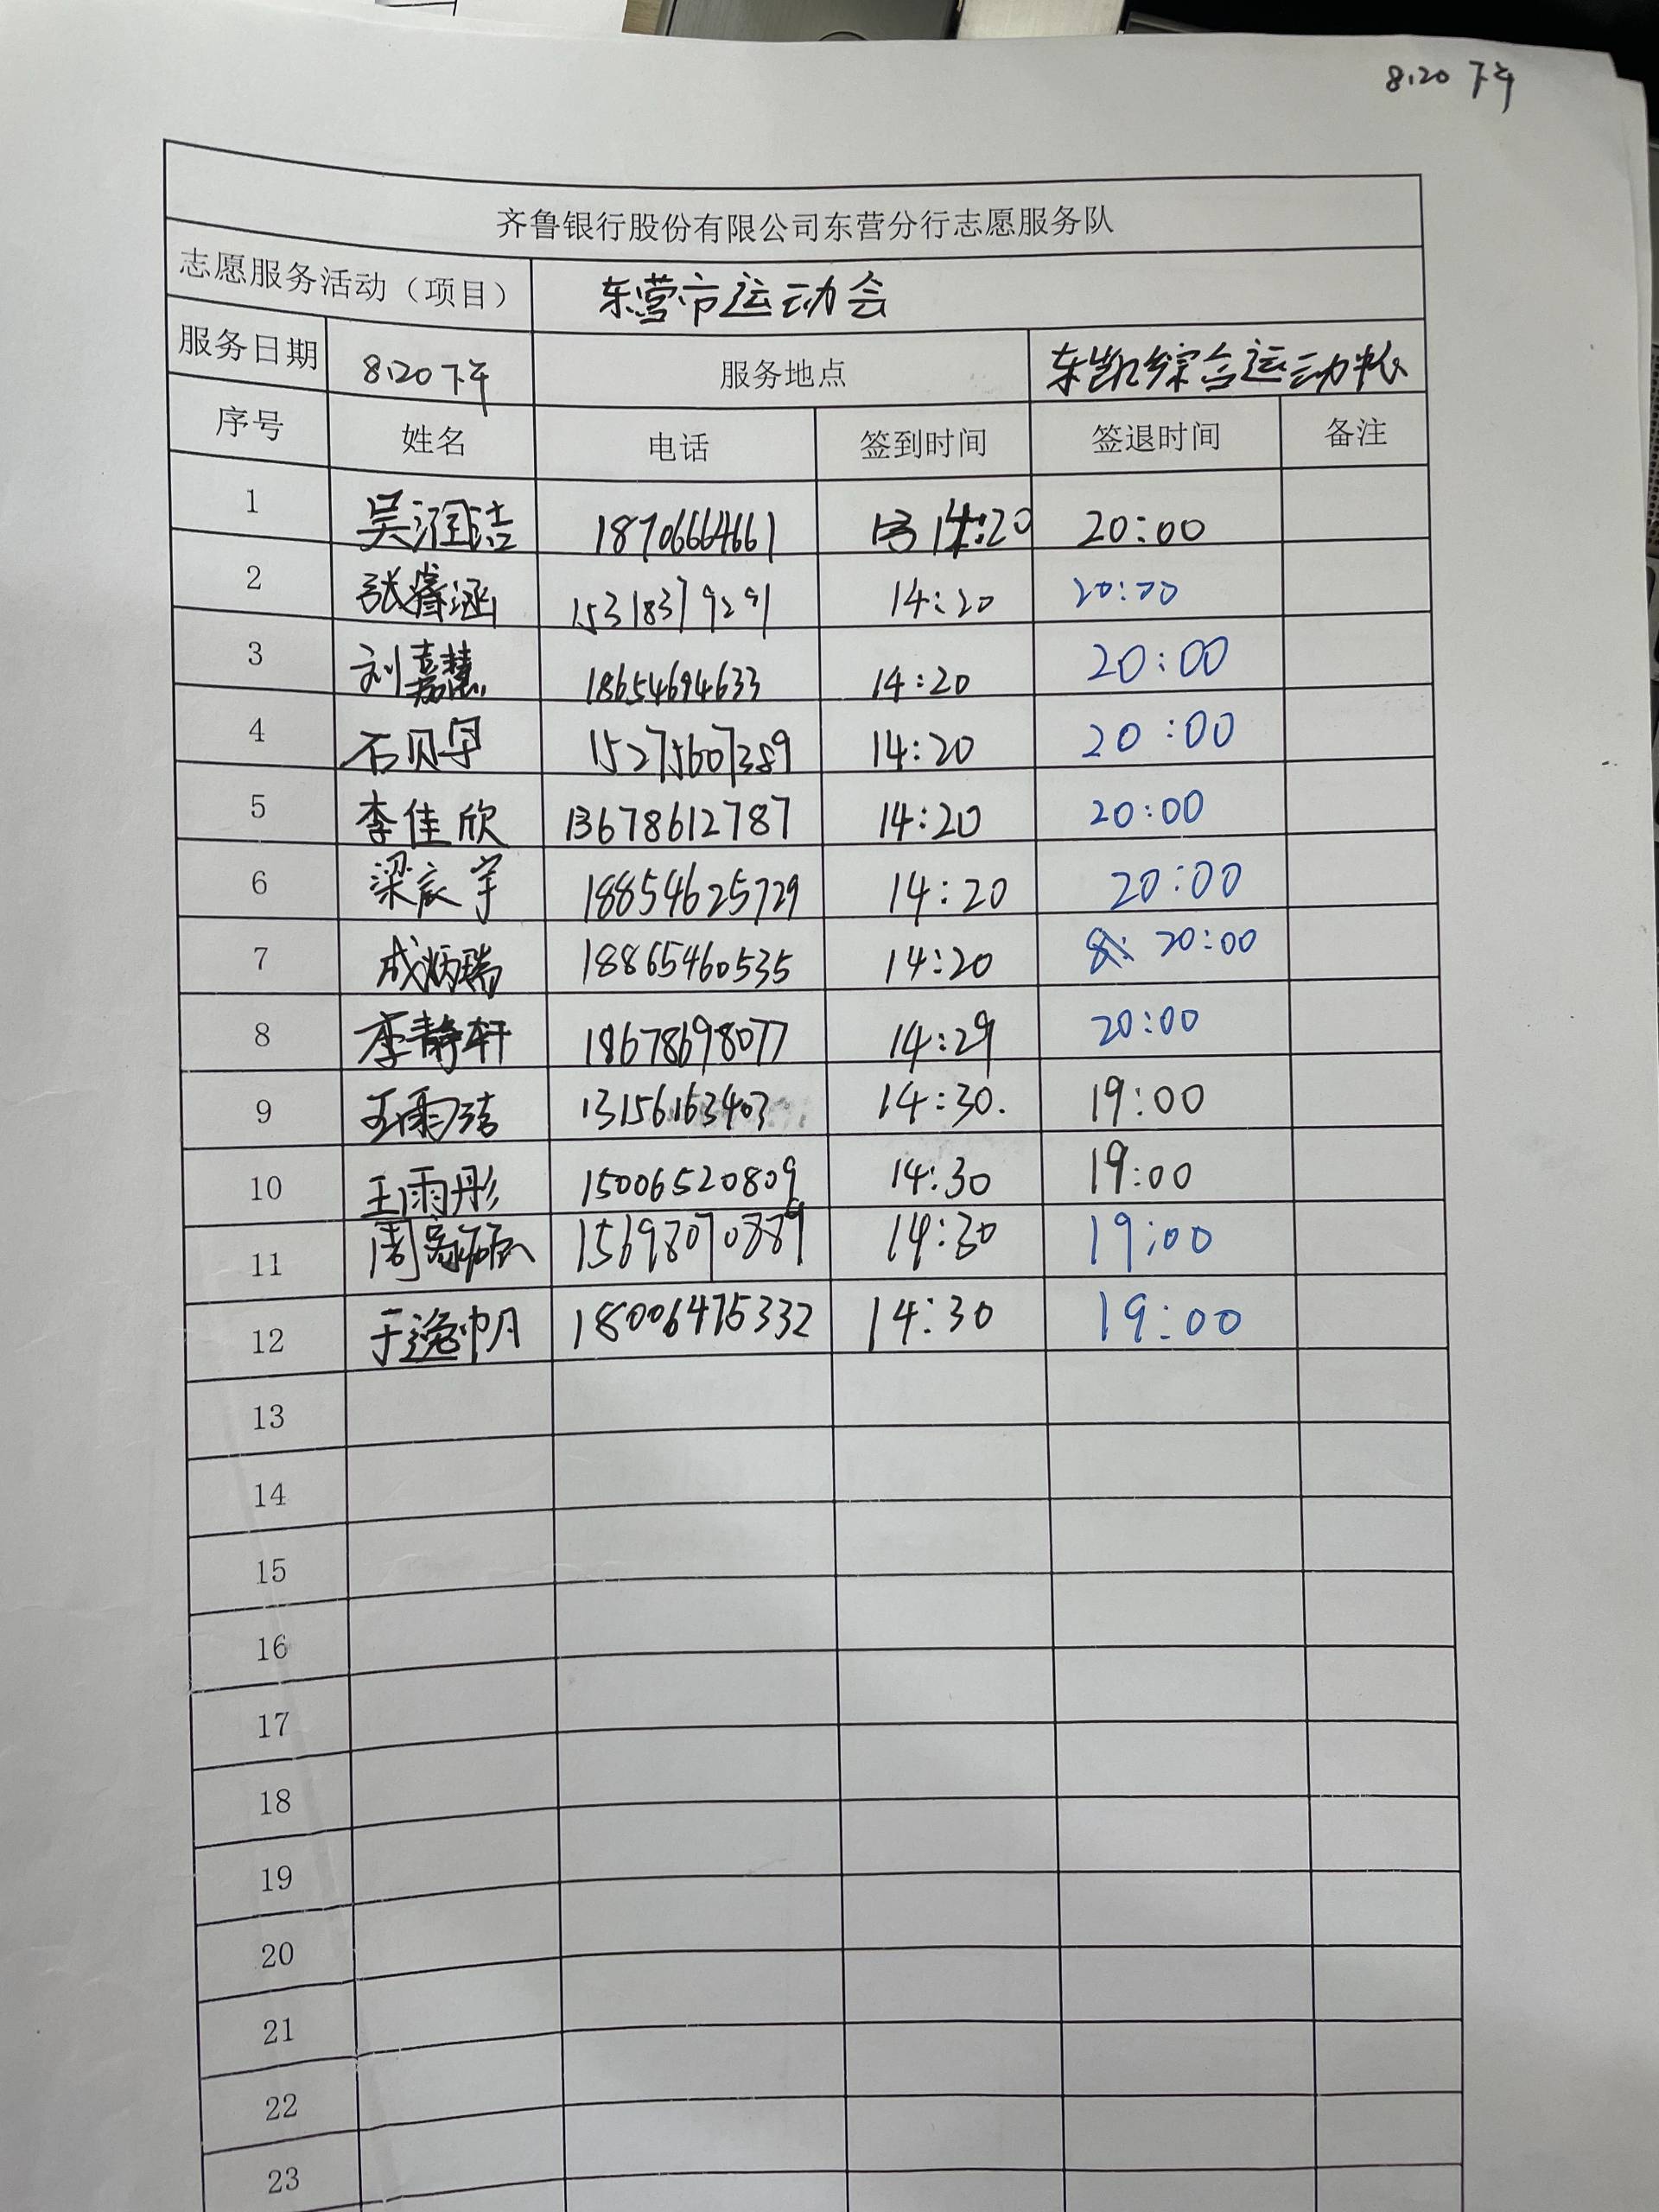 8.20 下午
齐鲁银行股份有限公司东营分行志愿服务队
志愿服务活动（项目） 东营市运动会
服务日期 8.20 下午 服务地点 东凯综合运动
序号 姓名 电话 签到时间 签退时间 备注
1 吴润洁 18706664661 14:20 20:00
2 张睿涵 15318379291 14:20 20:00
3 刘嘉慧 18654694633 14:20 20:00
4 石贝 15275607389 14:20 20:00
5 李佳欣 13678612787 14:20 20:00
6 梁宸宇 18854625729 14:20 20:00
7 成炳瑞 18865460535 14:20 20:00
8 李静轩 18678698077 14:29 20:00
9 王雨洁 13156163403 14:30. 19:00
10 王雨彤 15006520809 14:30 19:00
11 周 15698070889 14:30 19:00
12 于逸帆 18006475332 14:30 19:00
13
14
15
16
17
18
19
20
21
22
23